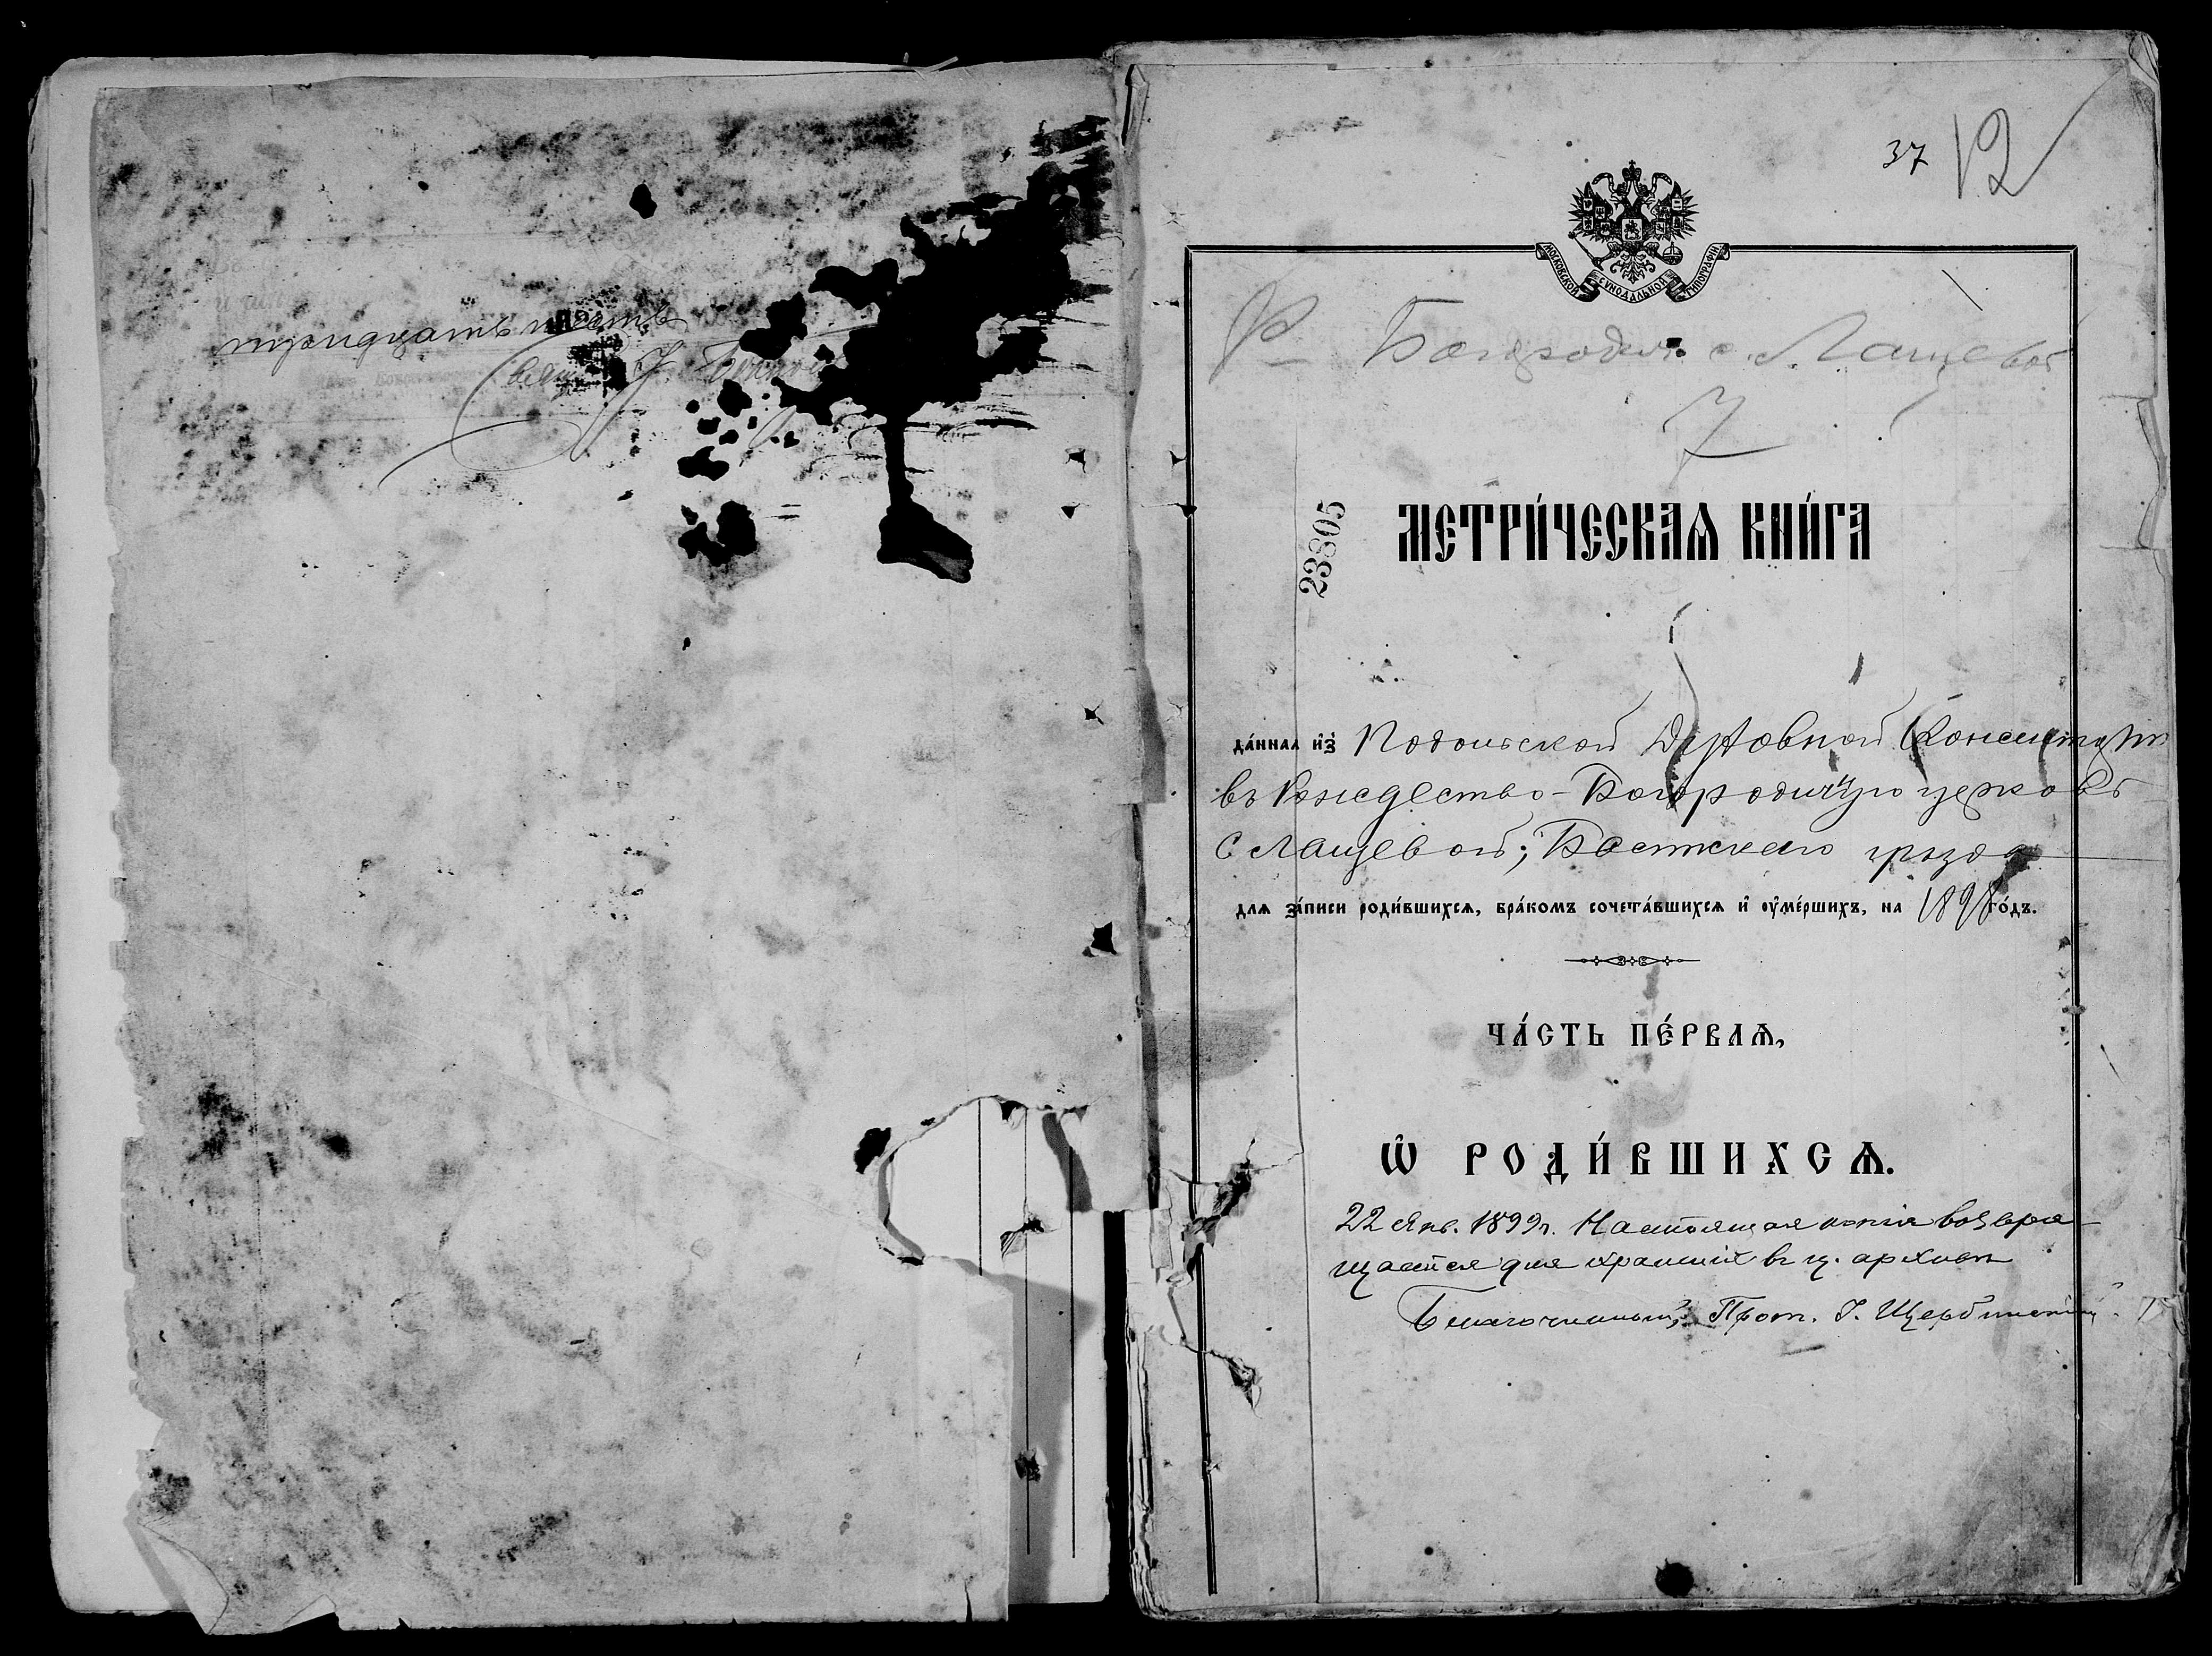 тридцать шесть
Свящ.
37
12
МОСКОВСКОЙ СѴНОДАЛЬНОЙ ТИПОГРАФІИ
Р– Богородич. с. Лащевой
7
23805
МЕТРИ́ЧЕСКАѦ КНИ́ГА
да́ннаѧ и҆з̾ Подольской Духовной Консисторіи
въ Рождество-Богородичную церковь
с Лащевой; Балтскаго уѣзда
длѧ за́писи роди́вшихсѧ, бра́комъ сочета́вшихсѧ и҆ оу҆ме́ршихъ, на 1898 го́дъ.
ЧА́СТЬ ПЕ́РВАѦ,
Ѽ РОДИ́ВШИХСѦ.
22 Янв. 1899 г. Настоящая копія возвра-
щается для храненія въ ц. архивѣ
Благочинный, Прот. І. Щербинскій.